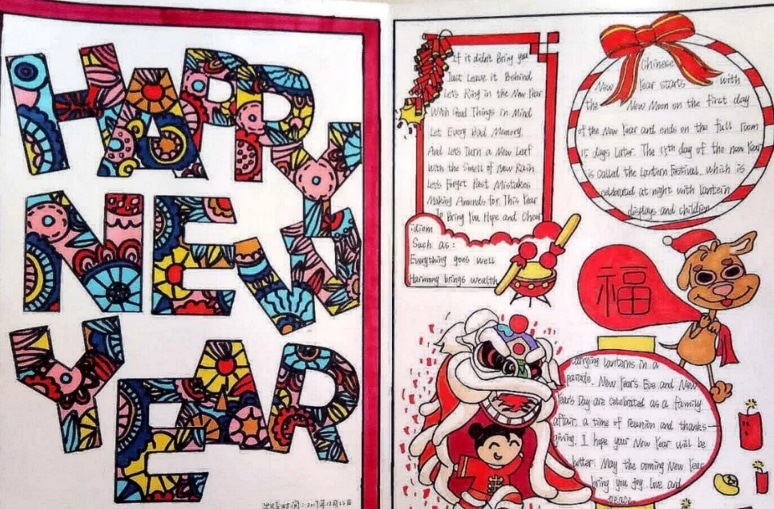 HAPPY
NEW
YEAR
If it didn't Bring you
Just Leave it Behind
Let's Ring in the New Year
With Good Things in Mind
Let Every Bad Memory
And Let's Turn a New Leaf
With the Smell of New Rain
Let's Forget Past Mistakes
Making Amends For This Year
To Bring You Hope and Cheer
idiom
Such as:
Everything goes well
Harmony brings wealth
Chinese
New Year starts with
the New Moon on the first day
of the New Year and ends on the full moon
15 days later. The 15th day of the new Year
is called the Lantern Festival, which is
celebrated at night with lantern
displays and children
福
carrying lanterns in a
parade. New Year's Eve and New
Year's Day are celebrated as a family
affair, a time of reunion and thanks-
giving. I hope your New Year will be
better. May the coming New Year
bring you joy, love and
peace.